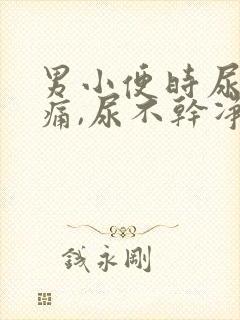 男小便時尿
痛,尿不幹淨
錢永剛